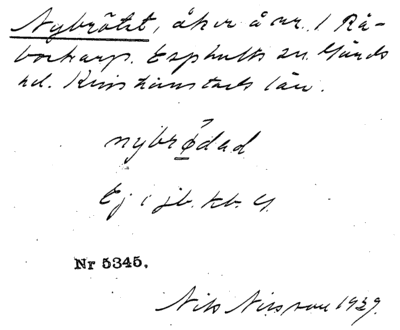 Nybrötet, åker å nr. 1 Rå-
bockarp. Esphults sn. Gärds
hd. Kristianstads län.
nybrødad
Ej i jb. kb. G.
Nr 5345.
Nils Nilsson 1929.